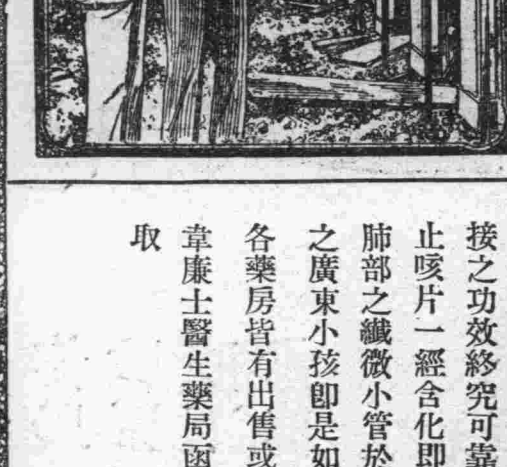 接之功效終究可靠
止咳片一經含化即
肺部之纖微小管於
之廣東小孩卽是如
各藥房皆有出售或
韋廉士醫生藥局函
取